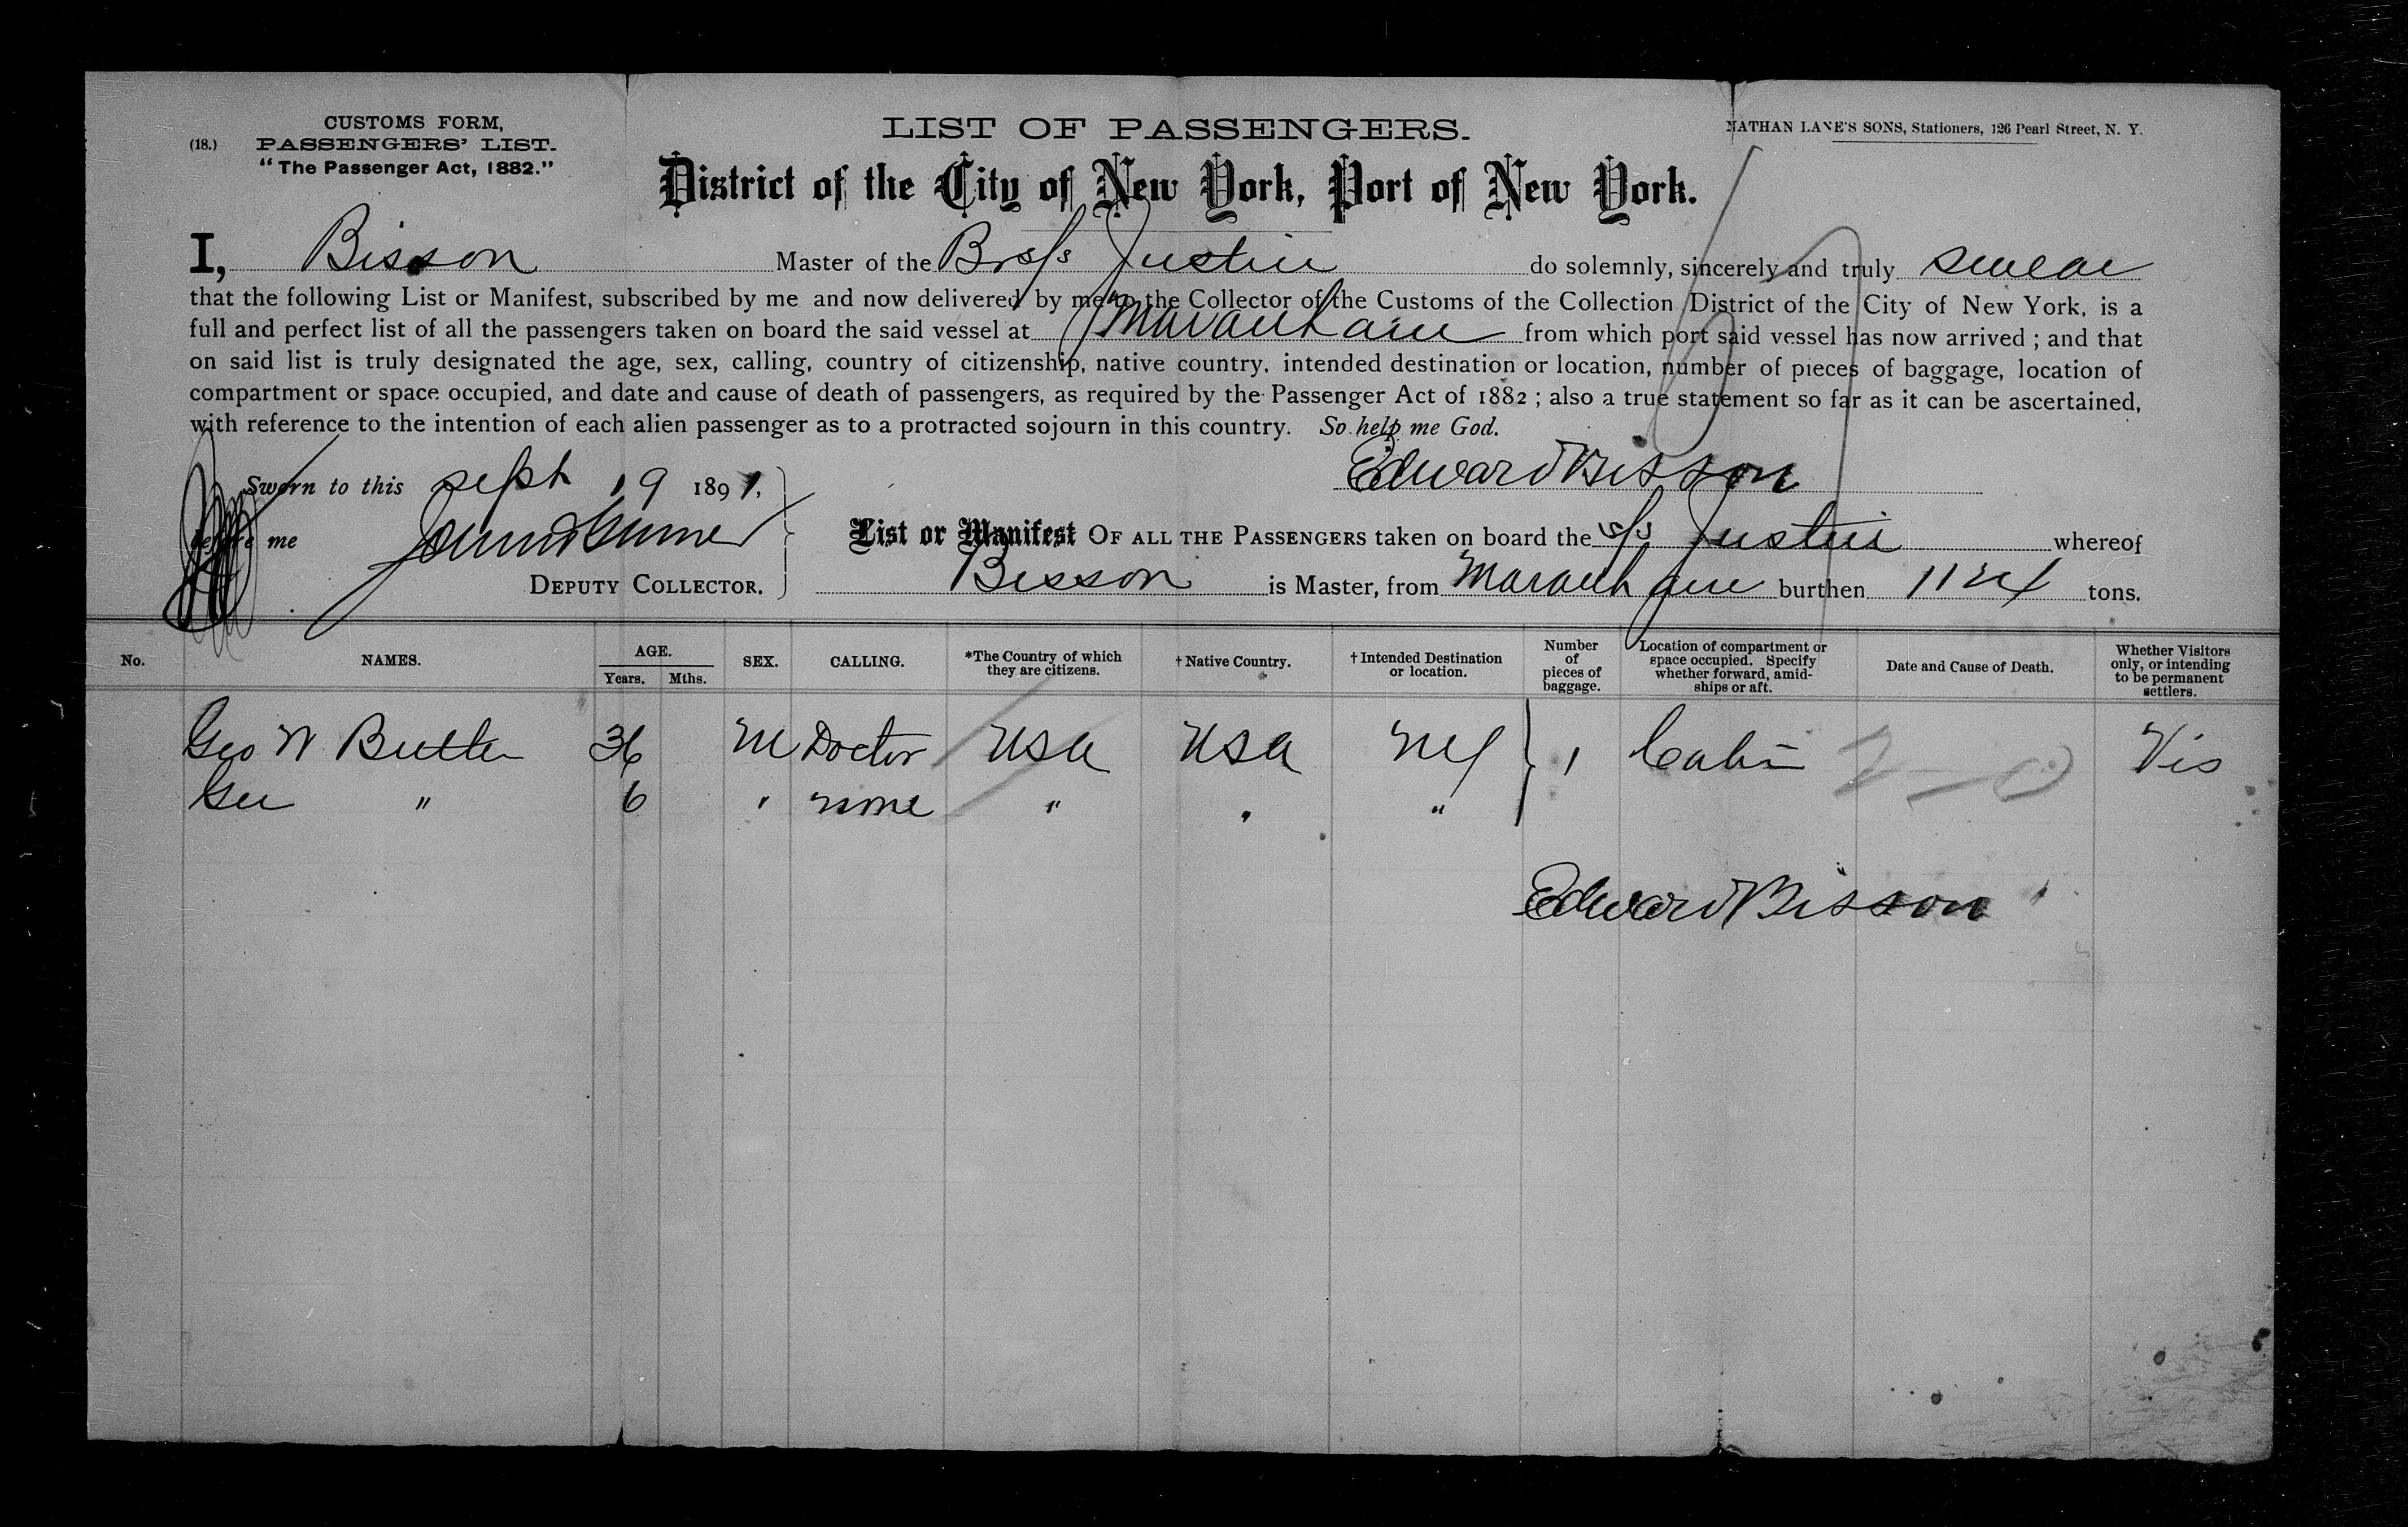 CUSTOMS FORM,
(18.) PASSENGERS' LIST.
"The Passenger Act, 1882."
LIST OF PASSENGERS.
NATHAN LANE'S SONS, Stationers, 126 Pearl Street, N. Y.
District of the City of New York, Port of New York.
I, Bisson Master of the Br s/s Justin do solemnly, sincerely and truly swear
that the following List or Manifest, subscribed by me and now delivered by me to the Collector of the Customs of the Collection District of the City of New York, is a
full and perfect list of all the passengers taken on board the said vessel at Maranham from which port said vessel has now arrived ; and that
on said list is truly designated the age, sex, calling, country of citizenship, native country, intended destination or location, number of pieces of baggage, location of
compartment or space occupied, and date and cause of death of passengers, as required by the Passenger Act of 1882 ; also a true statement so far as it can be ascertained,
with reference to the intention of each alien passenger as to a protracted sojourn in this country. So help me God.
Edward Bisson
Sworn to this sept 19 1891.
before me
DEPUTY COLLECTOR.
List or Manifest OF ALL THE PASSENGERS taken on board the s/s Justin whereof
Bisson is Master, from Maranham burthen tons.
No. NAMES. AGE. Years. Mths. SEX. CALLING. *The Country of which they are citizens. †Native Country. †Intended Destination or location. Number of pieces of baggage. Location of compartment or space occupied. Specify whether forward, amidships or aft. Date and Cause of Death. Whether Visitors only, or intending to be permanent settlers.
Geo W Butler 36 M Doctor USA USA NY } 1 Cabin Vis
" 6 " none " " "
Edward Bisson